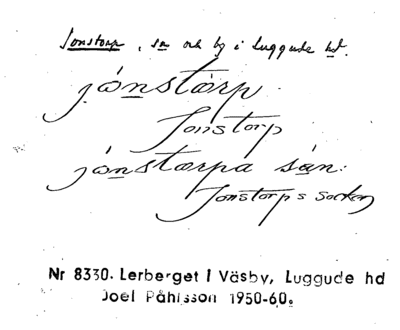 Jonstorp, sn och by i Luggude hd.
jònstàrp
Jonstorp
jònstàrpa sån:
Jonstorps socken
Nr 8330. Lerberget i Väsby, Luggude hd
Joel Påhlsson 1950-60.